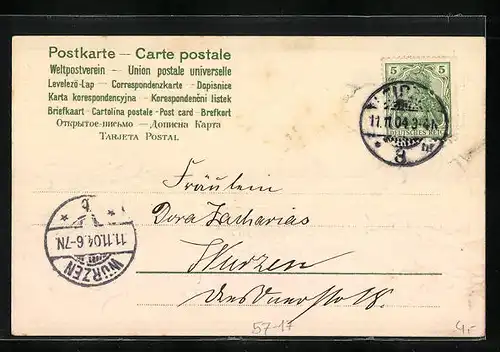 Postkarte — Carte postale
Weltpostverein — Union postale universelle
Levelező-Lap — Correspondenzkarte — Dopisnice
Karta korespondencyjna — Korespondenční listek
Briefkaart - Cartolina postale - Post card - Brefkort
Открытое-письмо — Дописна Карта
Tarjeta Postal
5 5
DEUTSCHES REICH
11.11.04
3
Fräulein
Dora Zacharias
Wurzen
11.11.04.6-7N.
WURZEN
57-17
4,-